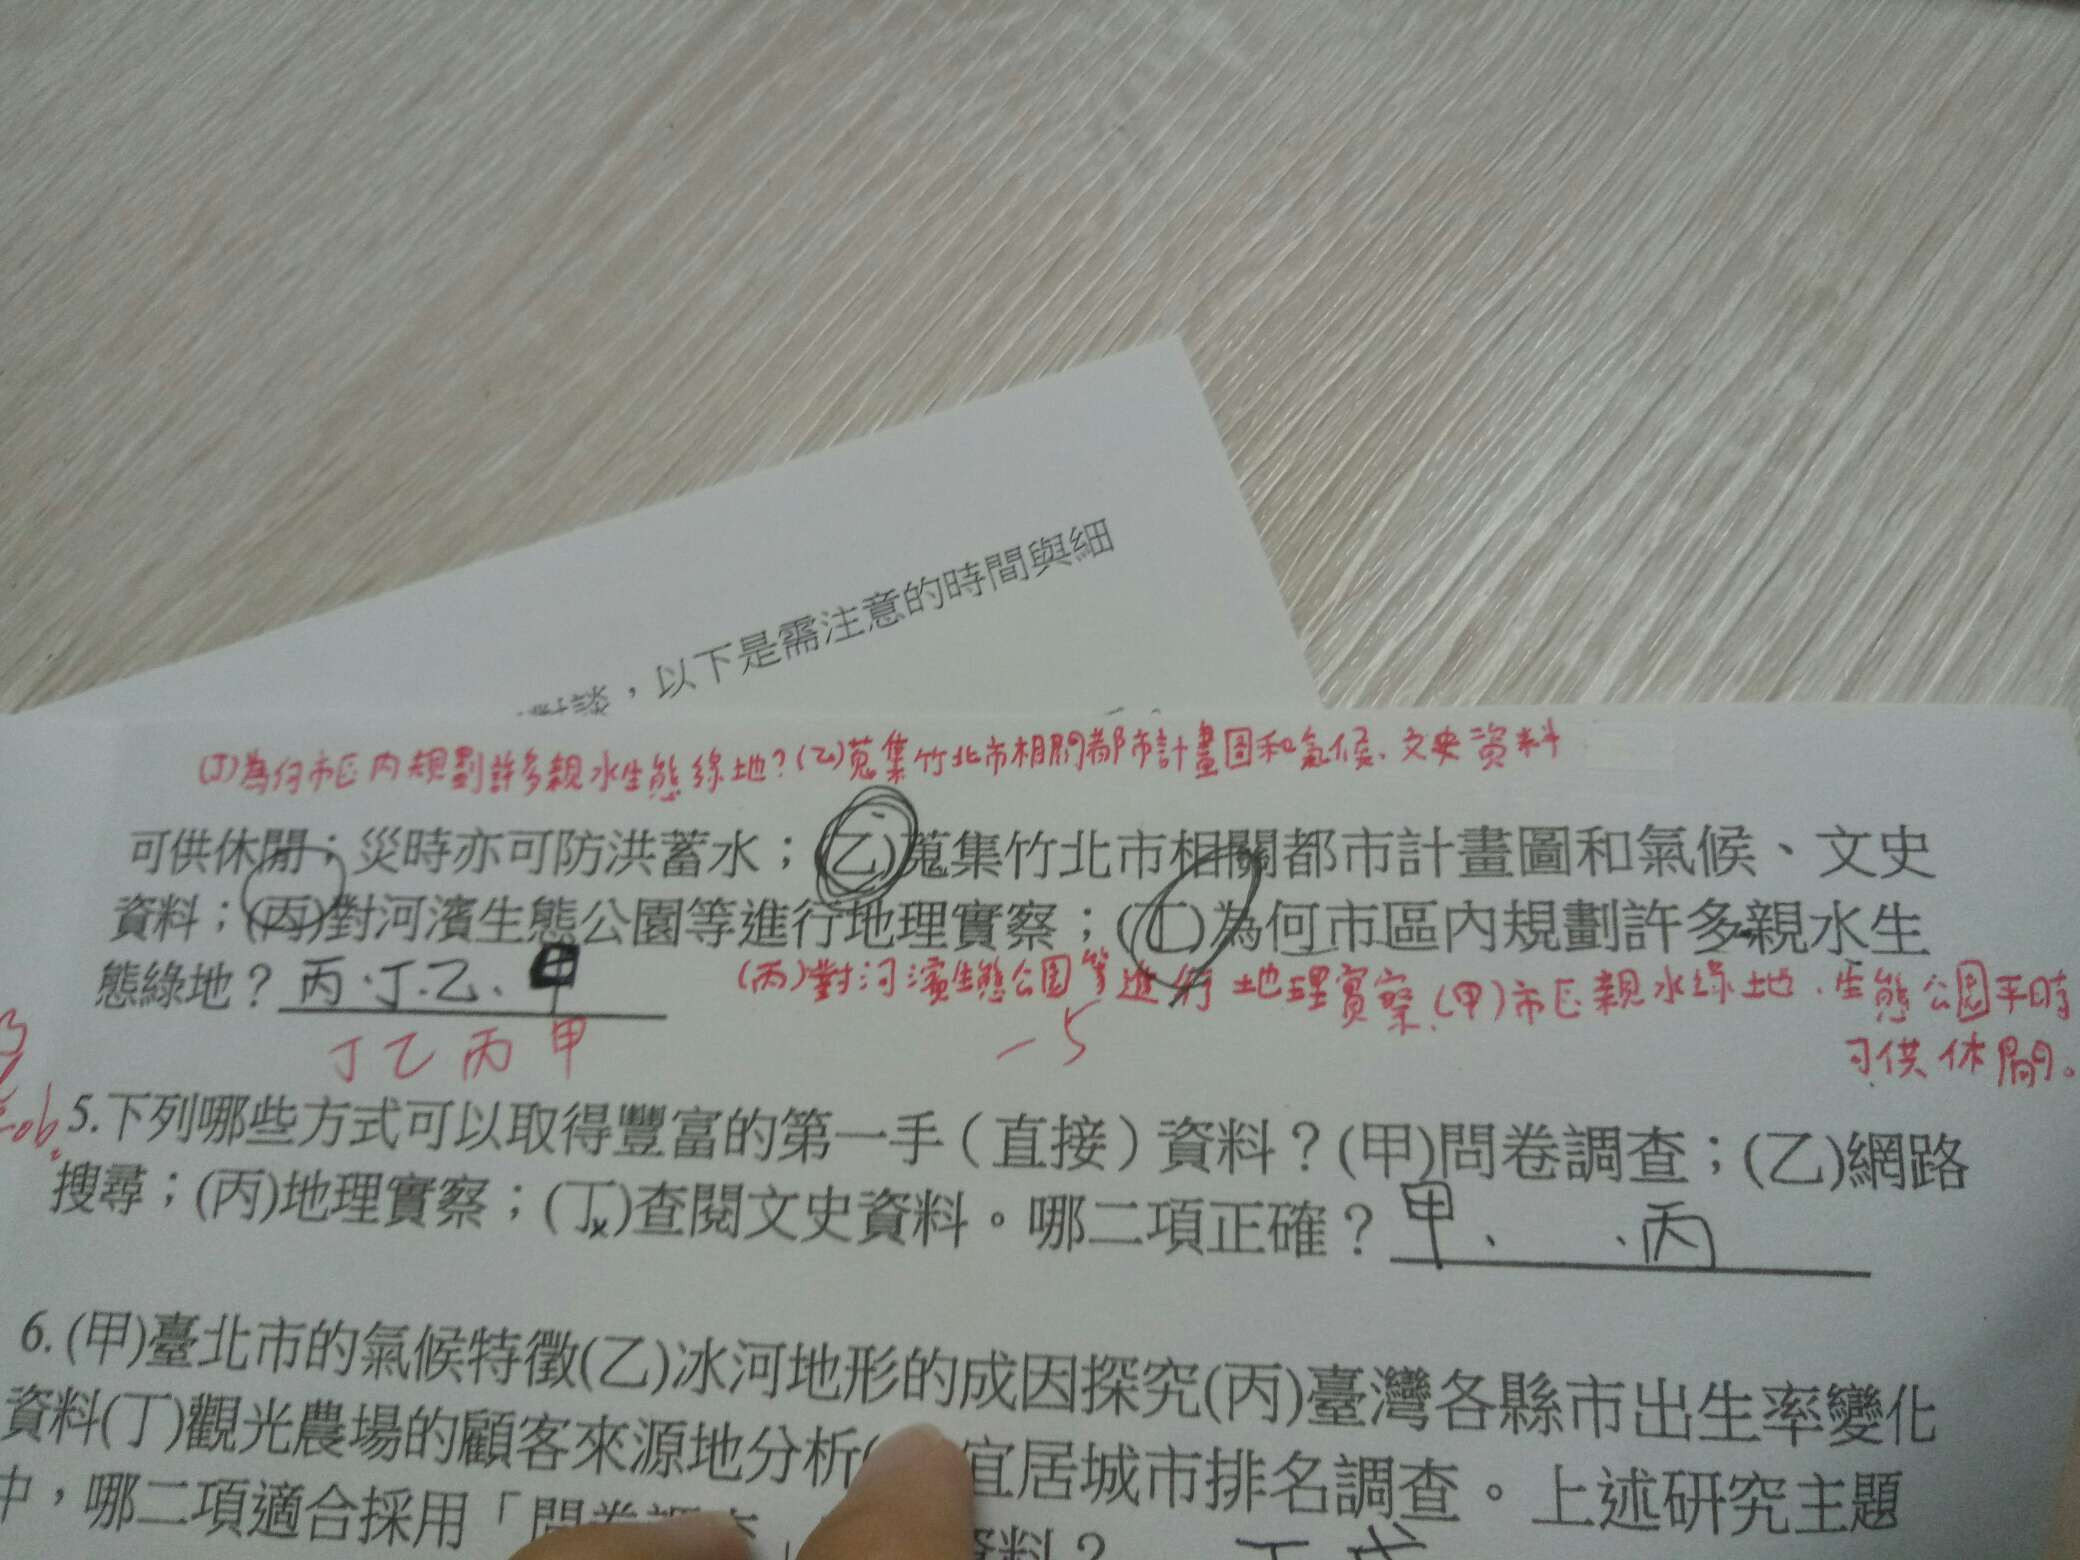 對談，以下是需注意的時間與細
(丁)為何市區內規劃許多親水生態綠地？(乙)蒐集竹北市相關都市計畫圖和氣候、文史資料
可供休閒；災時亦可防洪蓄水；(乙)蒐集竹北市相關都市計畫圖和氣候、文史
資料；(丙)對河濱生態公園等進行地理實察；(丁)為何市區內規劃許多親水生
態綠地？丙.丁.乙、甲
(丙)對河濱生態公園等進行地理實察、(甲)市區親水綠地、生態公園平時
可供休閒。
丁乙丙甲
-5
5.下列哪些方式可以取得豐富的第一手（直接）資料？(甲)問卷調查；(乙)網路
搜尋；(丙)地理實察；(丁)查閱文史資料。哪二項正確？甲、、丙
6.(甲)臺北市的氣候特徵(乙)冰河地形的成因探究(丙)臺灣各縣市出生率變化
資料(丁)觀光農場的顧客來源地分析(宜居城市排名調查。上述研究主題
中，哪二項適合採用「問卷調查」資料？丁戊